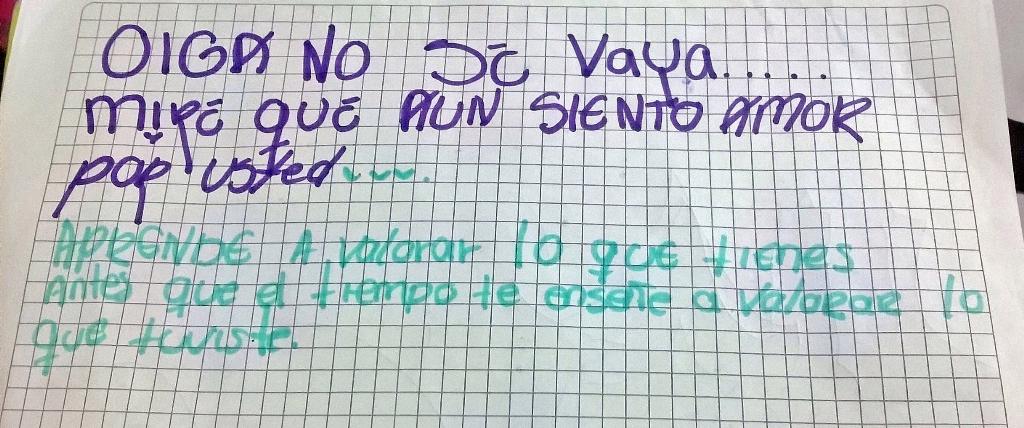 OIGA NO SE Vaya.....
MIRE QUE AUN SIENTO AMOR
por usted....
APRENDE A valorar lo que tienes
Antes que el tiempo te enseñe a valorar lo
que tuviste.